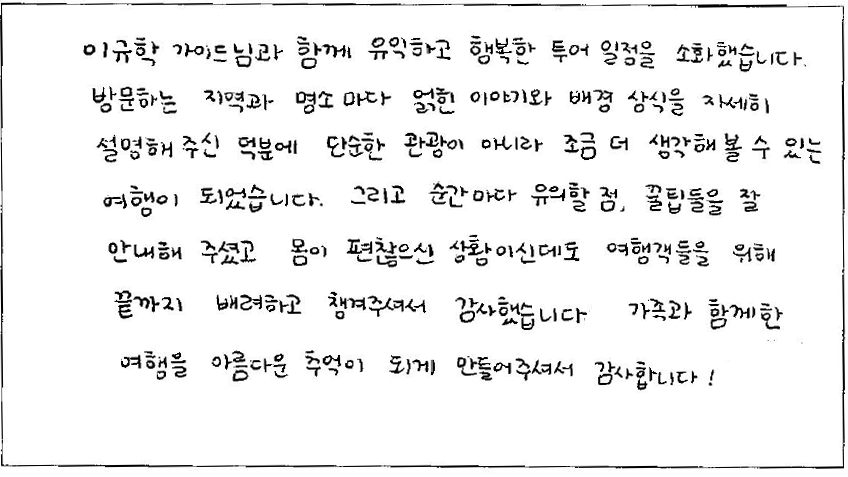 이규학 가이드님과 함께 유익하고 행복한 투어 일정을 소화했습니다.
방문하는 지역과 명소마다 얽힌 이야기와 배경 상식을 자세히
설명해 주신 덕분에 단순한 관광이 아니라 조금 더 생각해 볼 수 있는
여행이 되었습니다. 그리고 순간마다 유의할 점, 꿀팁들을 잘
안내해 주셨고 몸이 편찮으신 상황이신데도 여행객들을 위해
끝까지 배려하고 챙겨주셔서 감사했습니다 가족과 함께한
여행을 아름다운 추억이 되게 만들어주셔서 감사합니다!